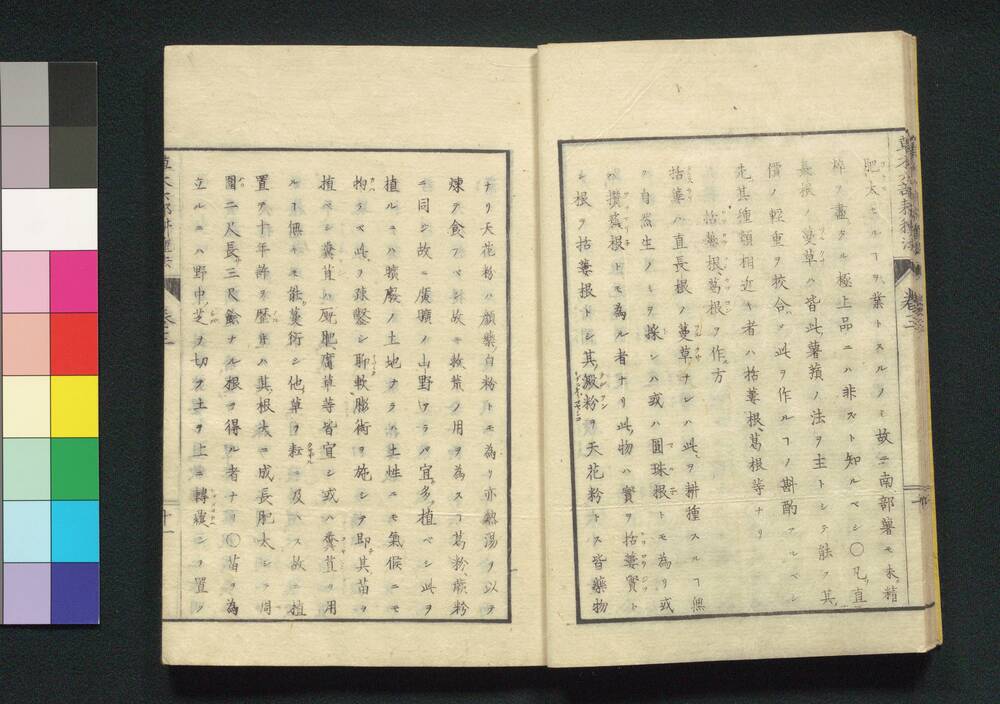 草木六部耕種法 巻三
肥大ニスルヿヲ業トスルノミ故ニ南部薯モ未精
粹ヲ盡タル極上品ニハ非ズト知ルベシ〇凡直
長根ノ蔓草ハ皆此薯蕷ノ法ヲ主トシテ能ク其
價ノ輕重ヲ挍合シ此ヲ作ルヿノ斟酌アルベシ
其種類相近キ者ハ括蔞根葛根等ナリ
括蔞根葛根ヲ作方
括蔞ハ直長根ノ蔓草ナレバ此ヲ耕種スルヿ無
ク自然生ノミヲ採シハ或ハ圓珠根トモ為リ或
ハ攅簇根トモ為ル者ナリ此物ハ實ヲ括蔞實ト
シ根ヲ括蔞根トシ其澱粉ヲ天花粉トス皆藥物
ナリ天花粉ハ顔藥白粉トモ為リ亦熱湯ヲ以テ
煉テ食フベシ故ニ救荒ノ用ヲ為スヿ葛粉蕨粉
ニ同シ故ニ廣曠ノ山野アラバ宜多植ベシ此ヲ
植ルニハ曠廢ノ土地ナラハ土性ニモ氣候ニモ
拘ラズ此ヲ疎鑿シ聊軟膨術ヲ施シテ即其苗ヲ
植ベシ糞苴ハ厩肥腐草等皆宜シ或ハ糞苴ヲ用
ルヿ無キモ能蔓衍シ他草ヲ耘ニ及ハズ故ニ植
置テ十年許ヲ歴レハ其根大ニ成長肥太シテ周
圍二尺長三尺餘ナル根ヲ得ル者ナリ〇苗ヲ為
立ルニハ野中ノ芝ヲ切テ土ヲ上ニ轉覆シテ置テ
十一